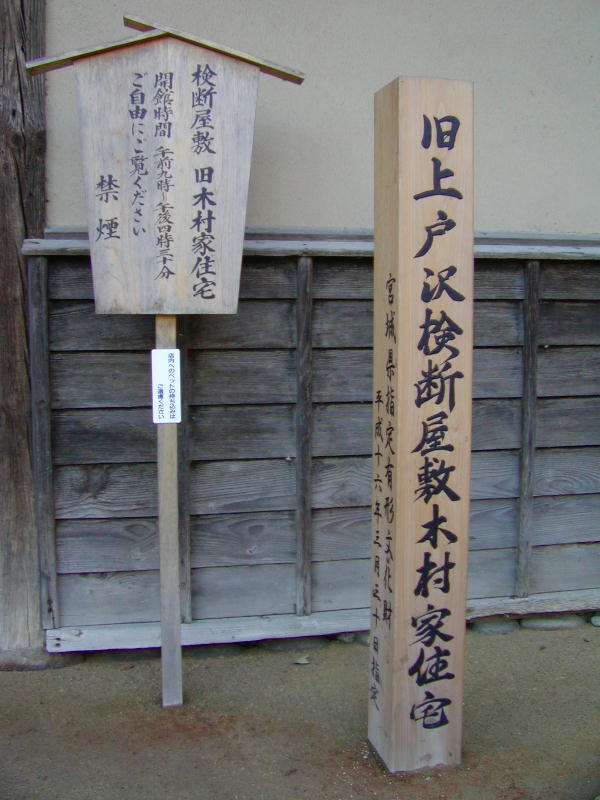 検断屋敷 旧木村家住宅
開館時間 午前九時~午後四時三十分
ご自由にご覧ください
禁煙
店内へのペットの持ち込みは
ご遠慮ください
旧上戸沢検断屋敷木村家住宅
宮城県指定有形文化財
平成十六年三月三十日指定